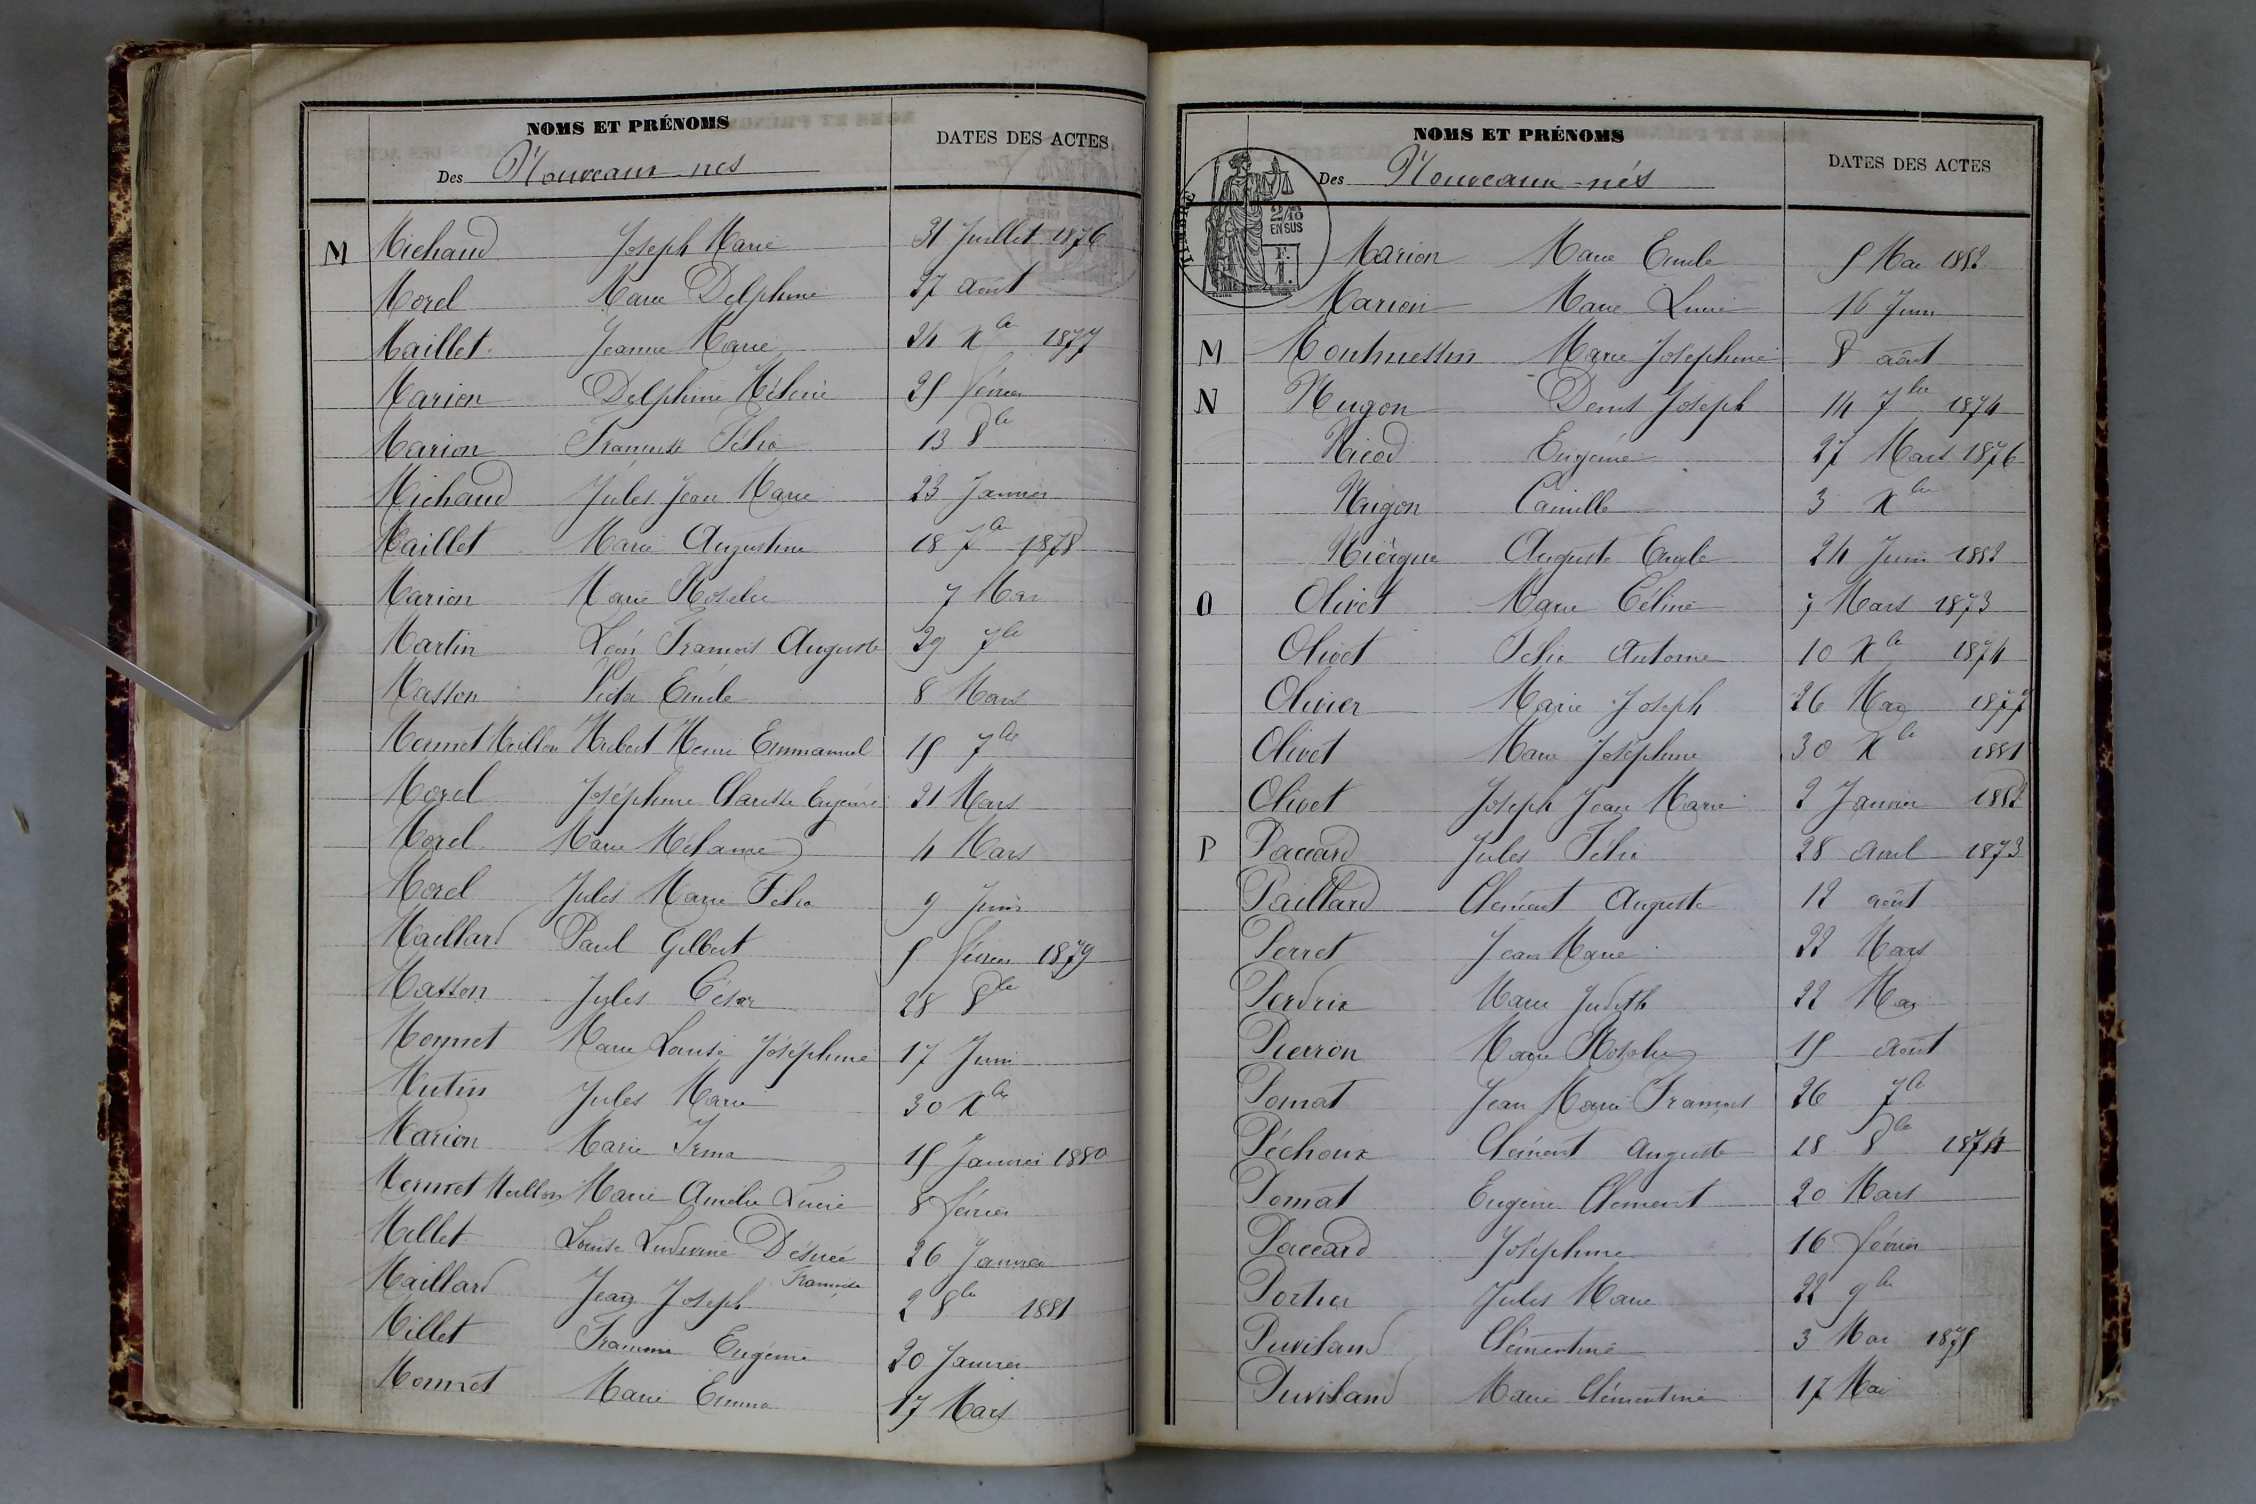 NOMS ET PRÉNOMS
DATES DES ACTES
Des Nouveaux-nés
M Michaud Joseph Marie 31 Juillet 1876
Morel Marie Delphine 27 août
Maillet Jeanne Marie 24 Xbre 1877
Marion Delphine Hélène 25 février
Marion Françoise Félix 13 8bre
Michaud Jules Jean Marie 23 Janvier
Maillet Marie Augustine 18 7bre 1878
Marion Marie Rosalie 7 Mai
Martin Léon François Auguste 29 7bre
Masson Victor Emile 8 Mars
Monnet Meillon Hubert Henri Emmanuel 15 7bre
Morel Joséphine Clarisse Eugénie 21 Mars
Morel Marie Mélanie 4 Mars
Morel Jules Marie Félix 9 Juin
Maillard Paul Gilbert 5 février 1879
Masson Jules César 28 8bre
Monnet Marie Louise Joséphine 17 Juin
Mutin Jules Marie 30 Xbre
Marion Marie Irma 15 Janvier 1880
Monnet Meillon Marie Amélie Lucie 8 février
Millet Louise Ludivine Désirée 26 Janvier
Françoise
Maillard Jean Joseph 2 8bre 1881
Millet Francine Eugénie 20 Janvier
Monnet Marie Emma 17 Mars
NOMS ET PRÉNOMS
DATES DES ACTES
Des Nouveaux-nés
TIMBRE
2/10
EN SUS
F.
1.
Marion Marie Emile 5 Mai 1882
Marion Marie Lucie 16 Juin
M Montmessin Marie Joséphine 8 août
N Nugon Denis Joseph 14 7bre 1874
Nicod Eugénie 27 Mars 1876
Nugon Camille 3 Xbre
Niérgue Auguste Emile 24 Juin 1882
O Olivet Marie Céline 7 Mars 1873
Olivet Félix Antoine 10 Xbre 1874
Olivier Marie Joseph 26 Mai 1877
Olivet Marie Joséphine 30 Xbre 1881
Olivet Joseph Jean Marie 2 Janvier 1882
P Paccard Jules Félix 28 avril 1873
Paillard Clément Auguste 12 août
Perret Jean Marie 22 Mars
Perdrix Marie Judith 22 Mai
Pierron Marie Rosalie 15 août
Pomat Jean Marie François 26 7bre
Péchoux Clément Auguste 18 8bre 1874
Pomat Eugénie Clément 20 Mars
Paccard Joséphine 16 février
Portier Jules Marie 22 9bre
Puviland Clémentine 3 Mai 1875
Puviland Marie Clémentine 17 Mai